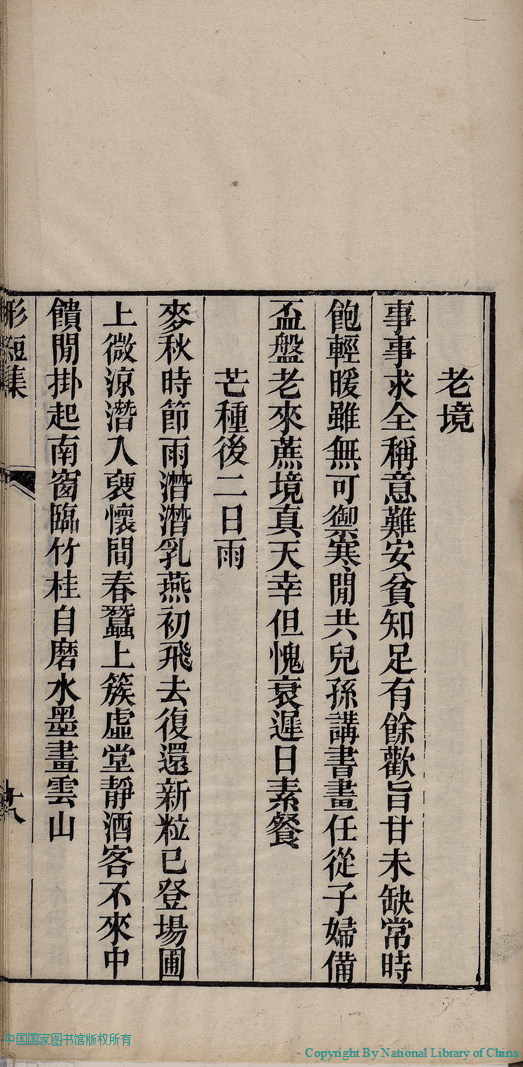 老境
事事求全稱意難安貧知足有餘歡旨甘未缺常時
飽輕暖雖無可禦寒閒共兒孫講書畫任從子婦備
盃盤老來蔗境真天幸但愧衰遲日素餐
芒種後二日雨
麥秋時節雨潸潸乳燕初飛去復還新粒已登場圃
上微涼潛入褏懷間春蠶上簇虛堂靜酒客不來中
饋閒掛起南窗臨竹桂自磨水墨畫雲山
短集
十八
中国国家图书馆版权所有
- Copyright By National Library of China